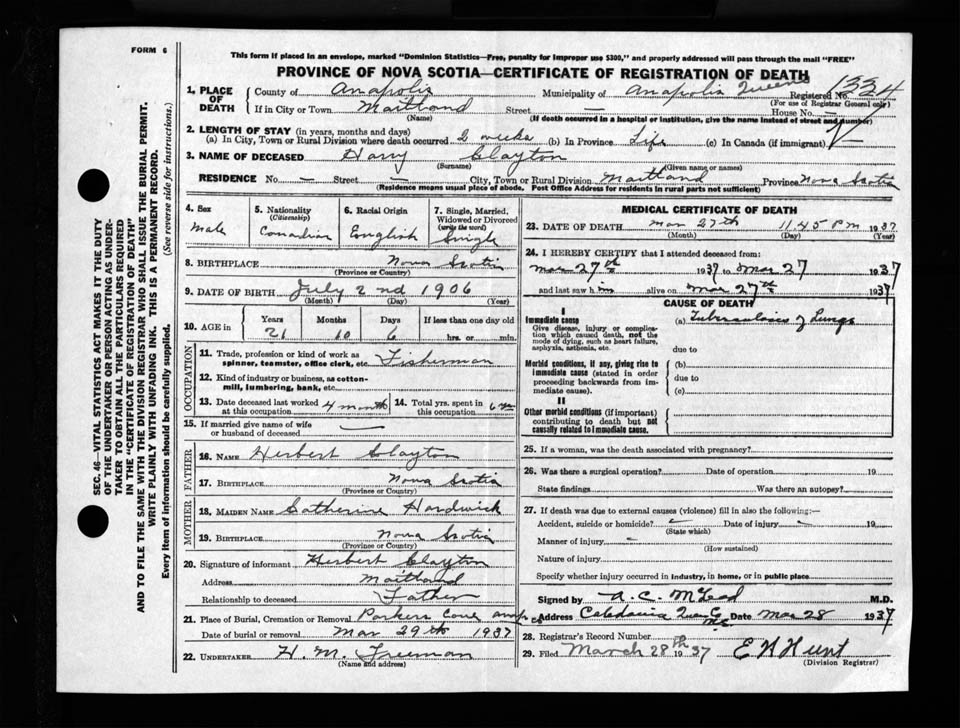 FORM 6
This form if placed in an envelope, marked "Dominion Statistics—Free, penalty for improper use $300," and properly addressed will pass through the mail "FREE"
PROVINCE OF NOVA SCOTIA—CERTIFICATE OF REGISTRATION OF DEATH
1. PLACE OF DEATH { County of Anapolis Municipality of Anapolis Queens Registered No. 1334
(For use of Registrar General only)
If in City or Town Maitland Street — House No. —
(Name) (If death occurred in a hospital or institution, give the name instead of street and number)
2. LENGTH OF STAY (in years, months and days)
(a) In City, Town or Rural Division where death occurred 2 weeks (b) In Province Life (c) In Canada (if immigrant)
3. NAME OF DECEASED Harry Clayton
(Surname) (Given name or names)
RESIDENCE No. — Street — City, Town or Rural Division Maitland Province Nova Scotia
(Residence means usual place of abode. Post Office Address for residents in rural parts not sufficient)
4. Sex Male
5. Nationality (Citizenship) Canadian
6. Racial Origin English
7. Single, Married, Widowed or Divorced (write the word) Single
8. BIRTHPLACE Nova Scotia
(Province or Country)
9. DATE OF BIRTH July 2nd 1906
(Month) (Day) (Year)
10. AGE in { Years 21 Months 10 Days 6 If less than one day old hrs. or min.
OCCUPATION
11. Trade, profession or kind of work as spinner, teamster, office clerk, etc. Fisherman
12. Kind of industry or business, as cotton-mill, lumbering, bank, etc.
13. Date deceased last worked at this occupation 4 months
14. Total yrs. spent in this occupation 6 yrs
15. If married give name of wife or husband of deceased —
FATHER
16. NAME Herbert Clayton
17. BIRTHPLACE Nova Scotia
(Province or Country)
MOTHER
18. MAIDEN NAME Catherine Hardwick
19. BIRTHPLACE Nova Scotia
(Province or Country)
20. Signature of informant Herbert Clayton
Address Maitland
Relationship to deceased Father
21. Place of Burial, Cremation or Removal Parkers Cove
Date of burial or removal Mar 29th 1937
22. UNDERTAKER H. M. Freeman
(Name and address)
MEDICAL CERTIFICATE OF DEATH
23. DATE OF DEATH Mar 27th 11.45 PM 1937
(Month) (Day) (Year)
24. I HEREBY CERTIFY that I attended deceased from:
Mar 27th 1937 to Mar 27 1937
and last saw him alive on Mar 27th 1937
CAUSE OF DEATH
I
Immediate cause
Give disease, injury or complication which caused death, not the mode of dying, such as heart failure, asphyxia, asthenia, etc.
(a) Tuberculosis of Lungs
due to
Morbid conditions, if any, giving rise to immediate cause (stated in order proceeding backwards from immediate cause).
(b)
due to
(c)
II
Other morbid conditions (if important) contributing to death but not causally related to immediate cause.
25. If a woman, was the death associated with pregnancy?
26. Was there a surgical operation? Date of operation 19
State findings Was there an autopsy?
27. If death was due to external causes (violence) fill in also the following:—
Accident, suicide or homicide? Date of injury 19
(State which)
Manner of injury
(How sustained)
Nature of injury
Specify whether injury occurred in industry, in home, or in public place
Signed by A. C. McLeod M.D.
Address Caledonia Queens Co N.S. Date Mar 28 1937
28. Registrar's Record Number
29. Filed March 28th 1937 E N Hunt
(Division Registrar)
SEC. 46—VITAL STATISTICS ACT MAKES IT THE DUTY
OF THE UNDERTAKER OR PERSON ACTING AS UNDER-
TAKER TO OBTAIN ALL THE PARTICULARS REQUIRED
IN THE "CERTIFICATE OF REGISTRATION OF DEATH"
AND TO FILE THE SAME WITH THE DIVISION REGISTRAR WHO SHALL ISSUE THE BURIAL PERMIT.
WRITE PLAINLY WITH UNFADING INK. THIS IS A PERMANENT RECORD.
Every item of information should be carefully supplied. (See reverse side for instructions.)